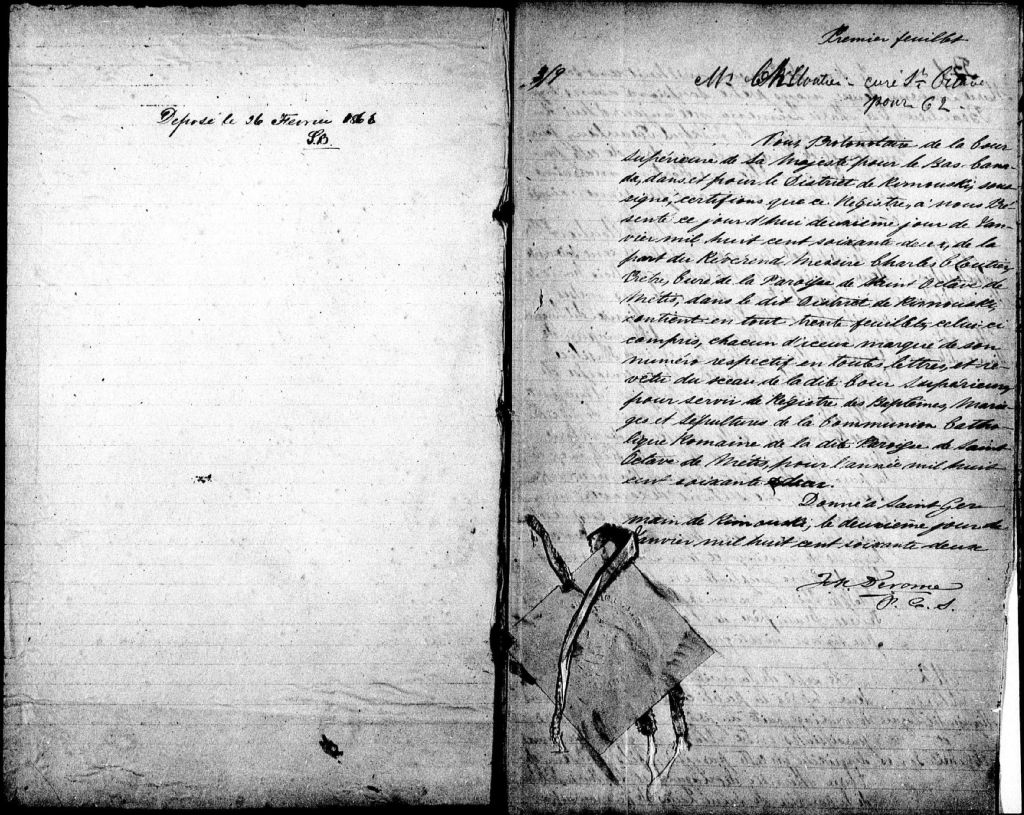 Deposé le 26 Fevrier 1863
S.B.
Premier feuillet
Mr Ch Cloutier - curé St Octave
pour 62
Nous Protonotaire de la Cour
supérieure de Sa Majesté pour le Bas Cana-
da, dans et pour le District de Rimouski, sous-
signé, certifions que ce Régistre, à nous Pré-
senté ce jour d'hui deuxième jour de Jan-
vier mil huit cent soixante deux, de la
part du Révérend Messire Charles Cloutier,
Prêtre, Curé de la Paroisse de Saint Octave de
Métis, dans le dit District de Rimouski,
contient en tout trente feuillets, celui ci
compris, chacun d'iceux marqué de son
numéro respectif en toutes lettres, et re-
vêtu du sceau de la dite Cour Supérieure,
pour servir de Régistre des Baptêmes, Maria-
ges et Sépultures de la Communion Catho-
lique Romaine de la dite Paroisse de Saint
Octave de Métis, pour l'année mil huit
cent soixante deux.
Donné à Saint Ger
main de Rimouski, le deuxième jour de
Janvier mil huit cent soixante deux
Derome
P. C. S.